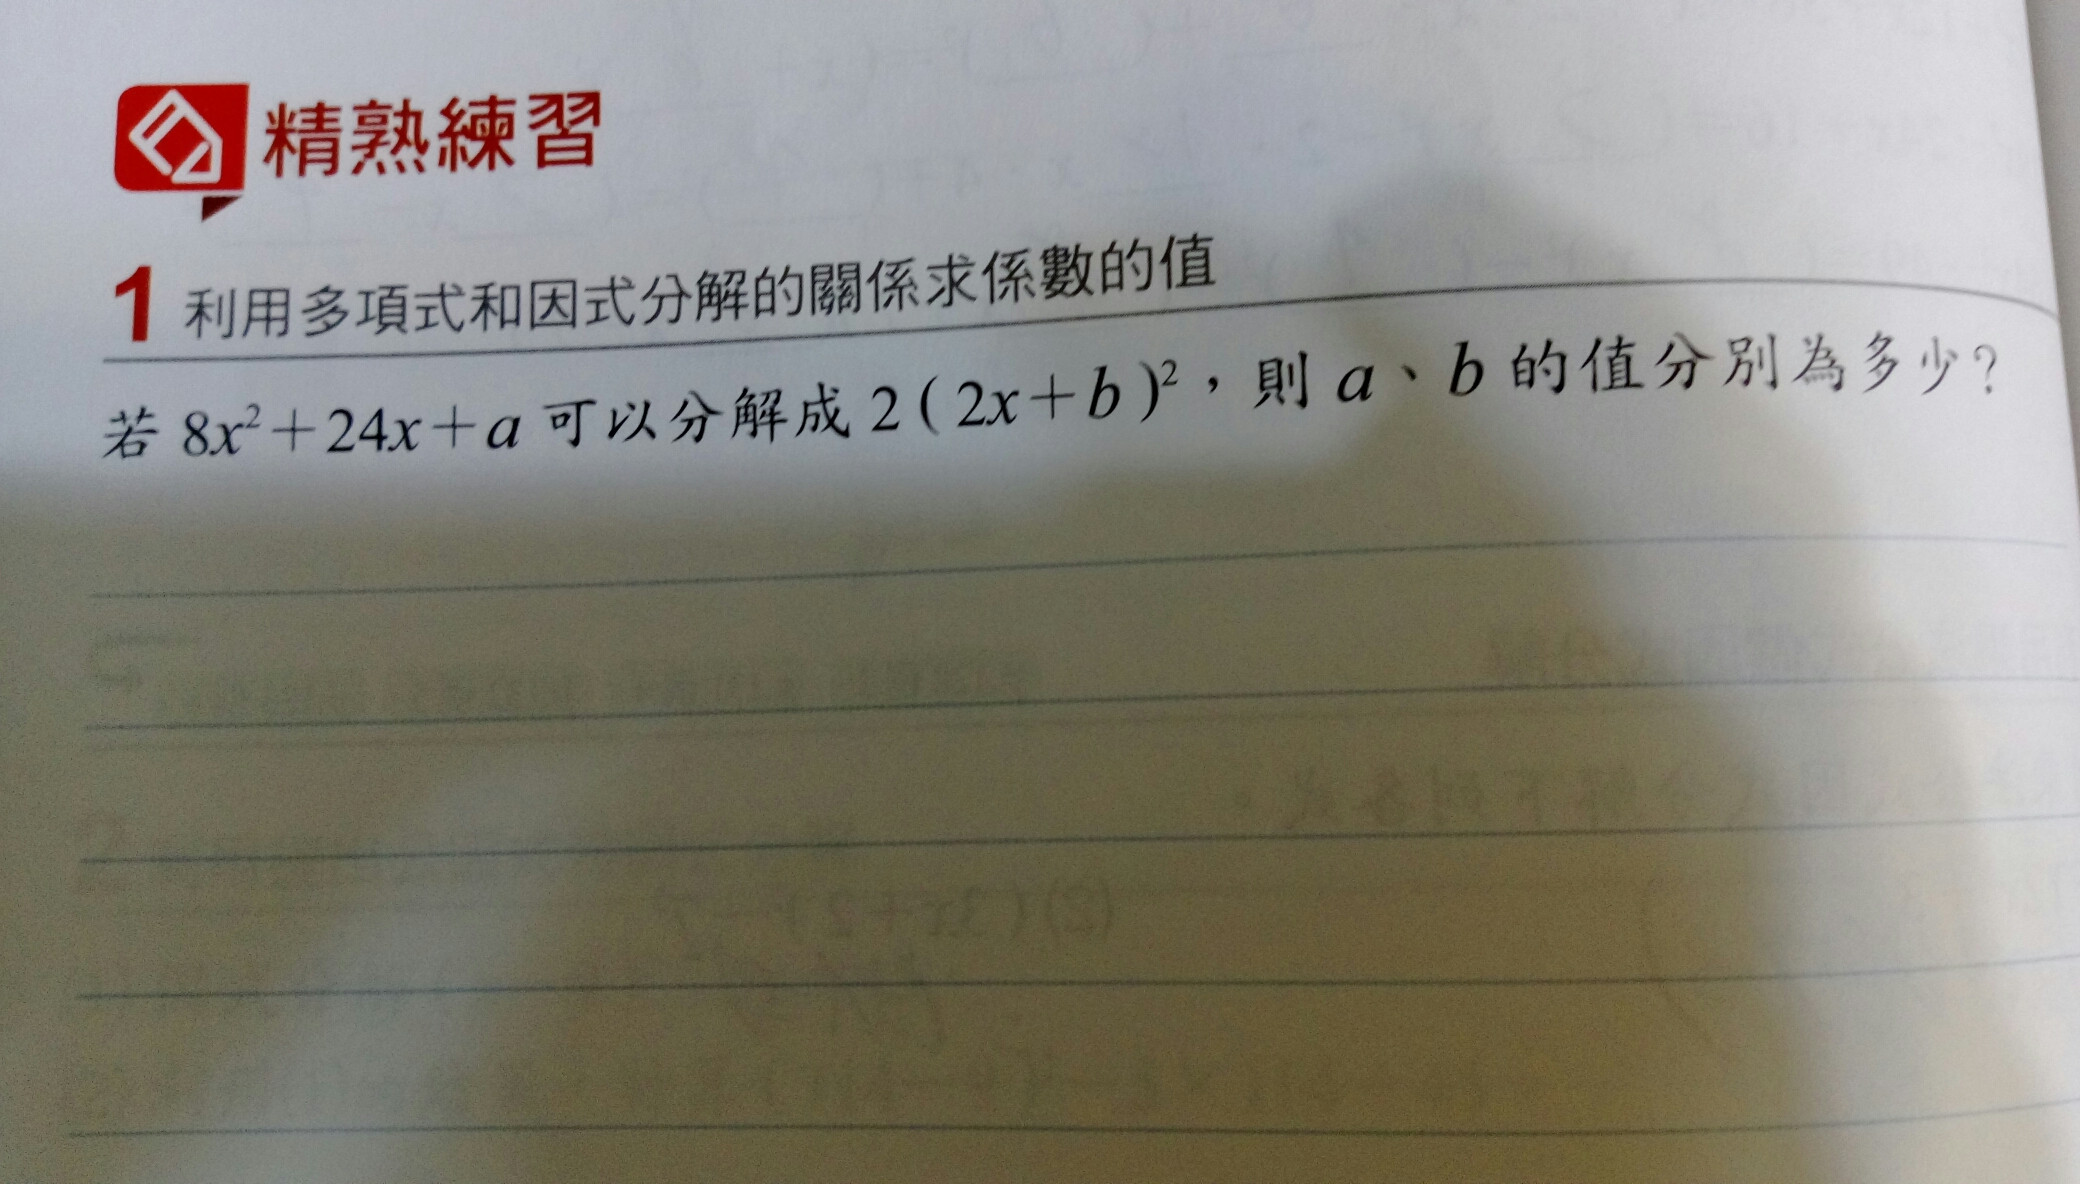 精熟練習
1 利用多項式和因式分解的關係求係數的值
若 8x²+24x+a 可以分解成 2(2x+b)²，則 a、b 的值分別為多少？